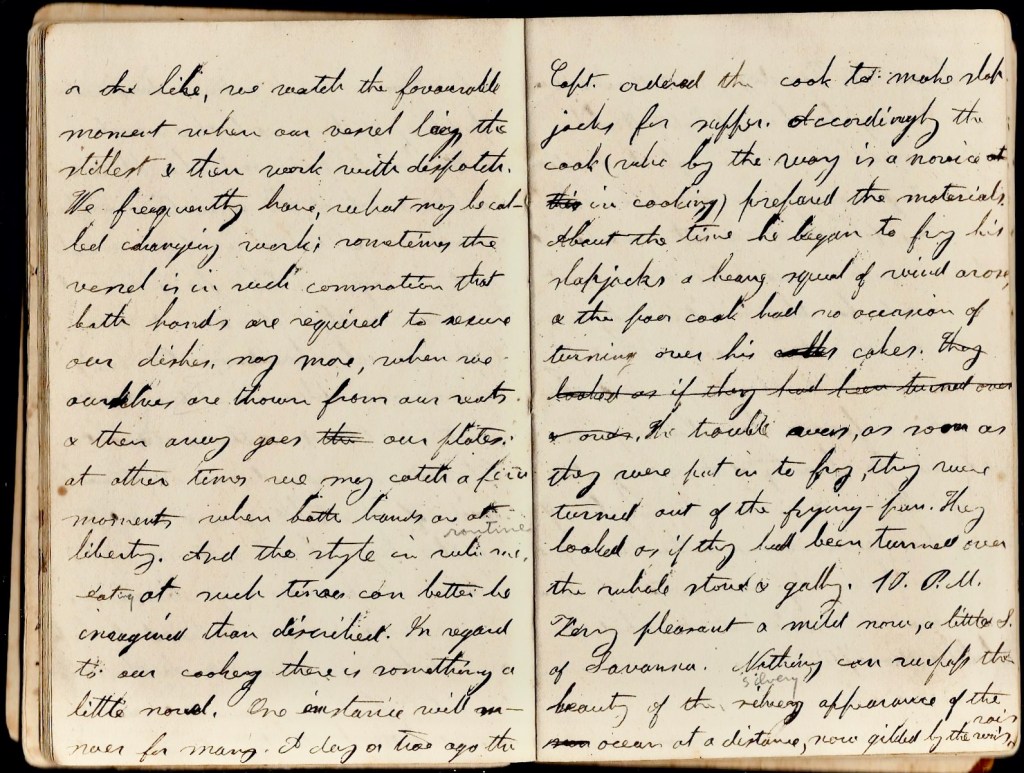 or the like, we watch the favourable
moment when our vessel lays the
stillest & then work with dispatch.
We frequently have, what may be cal-
led changing work; sometimes the
vessel is in such commotion that
both hands are required to secure
our dishes, nay more, when we
ourselves are thrown from our seats
& then away goes the our plates:
at other times we may catch a few
moments when both hands are at
routine
liberty. And the style in
eating at such times can better be
imagined than discribed. In regard
to our cookery there is something a
little novel. One instance will an-
swer for many. A day or two ago the
Capt. ordered the cook to make slap
jacks for supper. Accordingly the
cook (who by the way is a novice at
this in cooking) prepared the materials.
About the time he began to fry his
slapjacks a heavy squal of wind arose,
& the poor cook had no occasion of
turning over his cakes. They
looked as if they had been turned over
& over. The trouble was, as soon as
they were put in to fry, they were
turned out of the frying-pan. They
looked as if they had been turned over
the whole stove & gally. 10. P.M.
Very pleasant & mild now, a little S.
of Savanna. Nothing can surpass the
silvery
beauty of the silvery appearance of the
ocean at a distance, now gilded by the